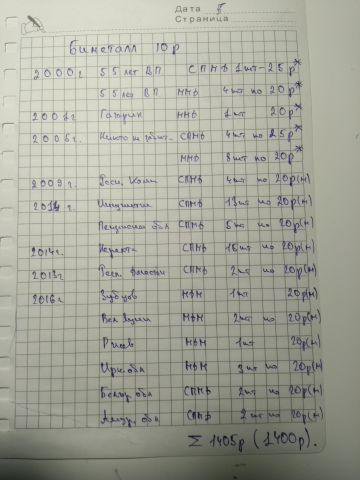 Дата
Страница
Биметалл 10р
2000г. 55 лет ВП СПМД 1шт-25р*
55 лет ВП ММД 4шт по 20р*
2001г Гагарин ММД 1шт 20р*
2005г. Никто не забыт- СПМД 4шт по 25р*
ММД 8шт по 20р*
2009г. Респ. Коми СПМД 4шт по 20р(м)
Пензенская обл СПМД 5шт по 20р(м)
2014г. Нерехта СПМД 16шт по 20р(м)
2013г СПМД 2шт по 20р(м)
2016г Зубцов ММД 1шт 20р(м)
Вел Луки ММД 2шт по 20р(м)
Ржев ММД 1шт 20р(м)
Ирк обл ММД 3шт по 20р(м)
Белгор. обл СПМД 2шт по 20р(м)
Амур. обл СПМД 2шт по 20р(м)
Σ 1405р (1400р).